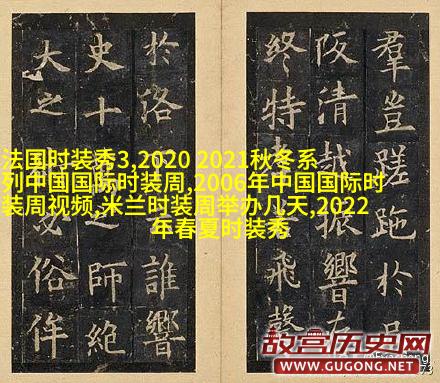 羣豈蹉跎於
阪清越振響
終特飛聲
於洛誰響
史十之師絕
大之俗侔
法国时装秀3,2020 2021秋冬系
列中国国际时装周,2006年中国国际时
装周视频,米兰时装周举办几天,2022
年春夏时装秀
故宫历史网
WWW.GUGONG.NET